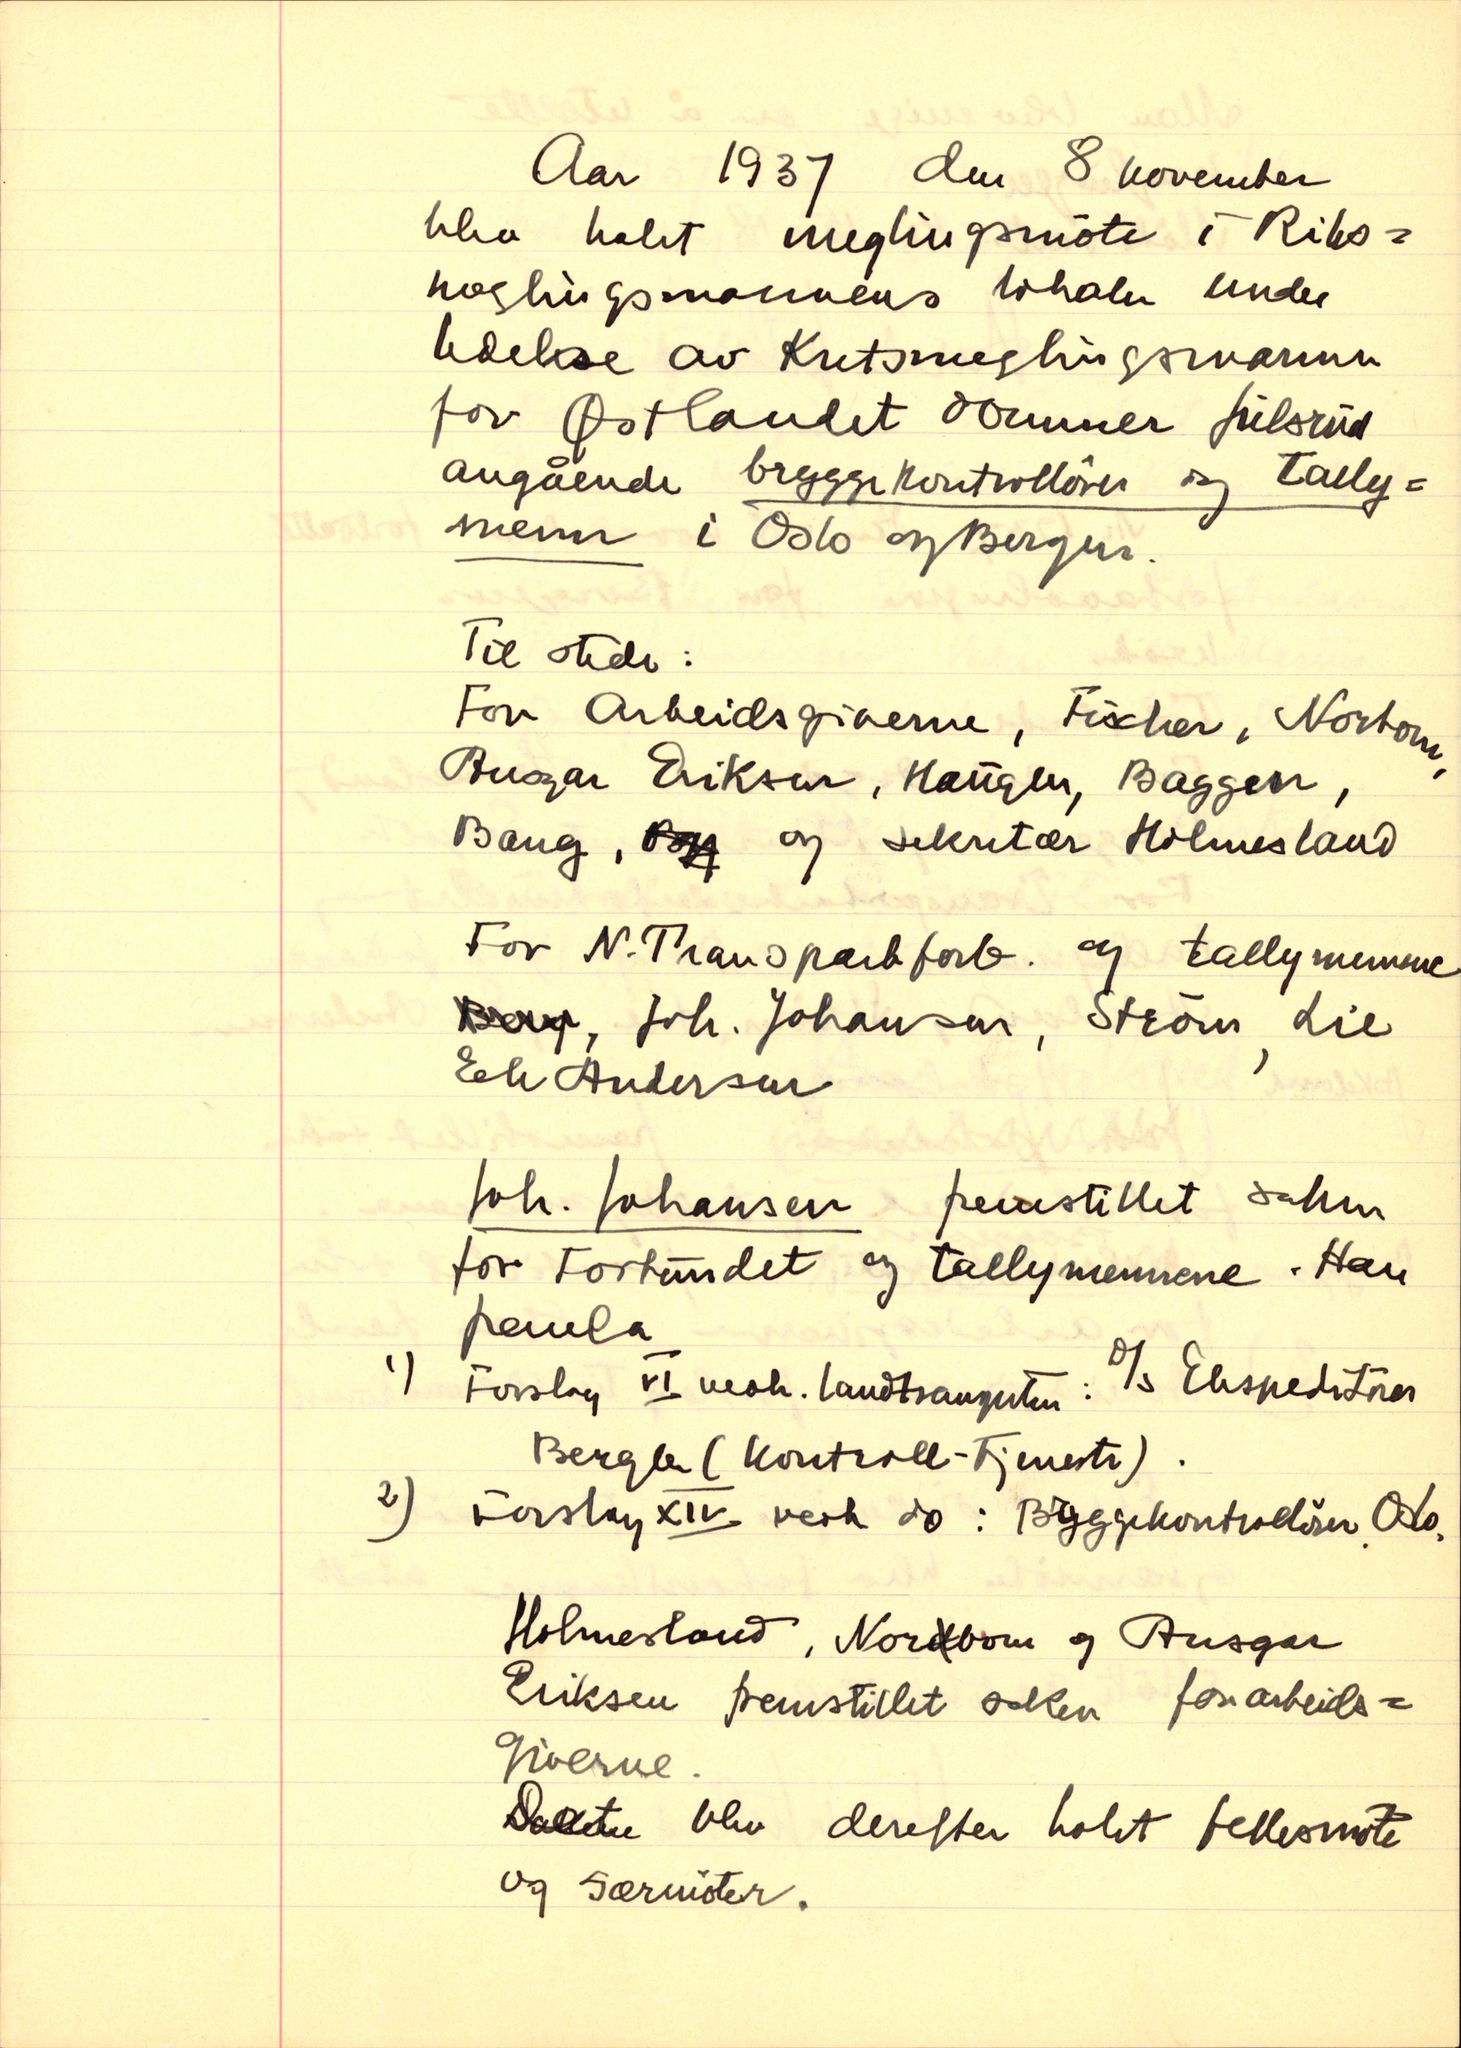 Aar 1937 den 8 november
blev holdt meglingsmöte i Riks=
meglingsmannens lokaler under
ledelse av Kretsmeglingsmannen
for Østlandet dommer Julsrud
angående bryggekontrollörer og tally=
menn i Oslo og Bergen.
Til stede:
For Arbeidsgiverne, Fischer, Norbom,
Ansgar Eriksen, Haugen, Bagger,
Bang, og sekretær Holmesland
For N. Transparbforb. og tallymennene
, Joh. Johansen, Ström, Lie
Andersen
Joh. Johansen fremstillet saken
for Forbundet og tallymennene. Han
fremla
1) Forslag VI vedr. landtransporten: D/S Ekspeditörer
Bergen (Kontroll-Tjeneste).
2) Forslag XIV vedr do: Bryggekontrollörer, Oslo.
Holmesland, Nordbom og Ansgar
Eriksen fremstillet saken for arbeids=
giverne.
blev derefter holdt fellesmöte
og særmöter.